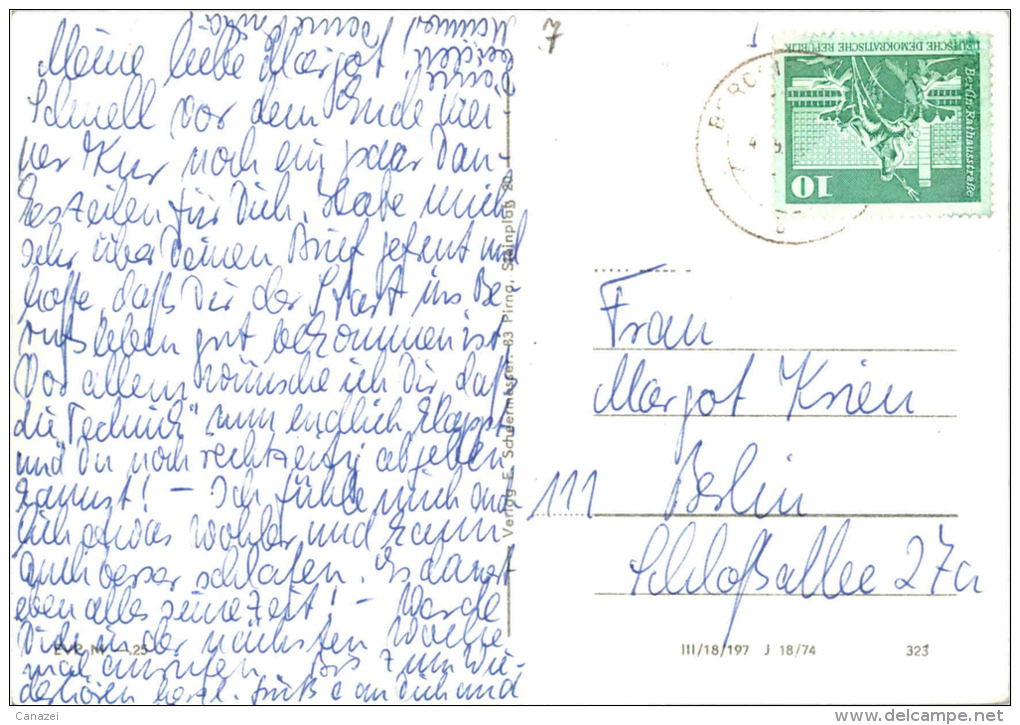 Meine liebe Margot!
Schnell vor dem Ende mei-
ner Kur noch ein paar Dan-
keszeilen für Dich. Habe mich
sehr über Deinen Brief gefreut und
hoffe, daß Dir der Start ins Be-
rufsleben gut bekommen ist.
Vor allem wünsche ich Dir, daß
die "Technik" nun endlich klappt
und Du noch rechtzeitig abgeben
kannst! – Ich fühle mich
etwas wohler und kann
auch besser schlafen. Es dauert
eben alles seine Zeit! – Werde
Dich in der nächsten Woche
mal anrufen. Bis zum Wie-
derhören herzl. Grüße an Dich und
Deine
beiden
Männer!
Deine
EVP M -,25
Verlag E. Schwermesser, 83 Pirna, Steinplatz 20
7
DEUTSCHE DEMOKRATISCHE REPUBLIK
Berlin-Rathausstraße
10
Frau
Margot Krien
111 Berlin
Schloßallee 27a
III/18/197 J 18/74 323
Canazei
www.delcampe.net